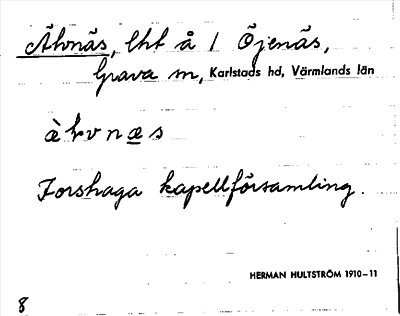 Älvnäs, lht å / Öjenäs,
Grava sn, Karlstads hd, Värmlands län
Forshaga kapellförsamling.
HERMAN HULTSTRÖM 1910–11
8